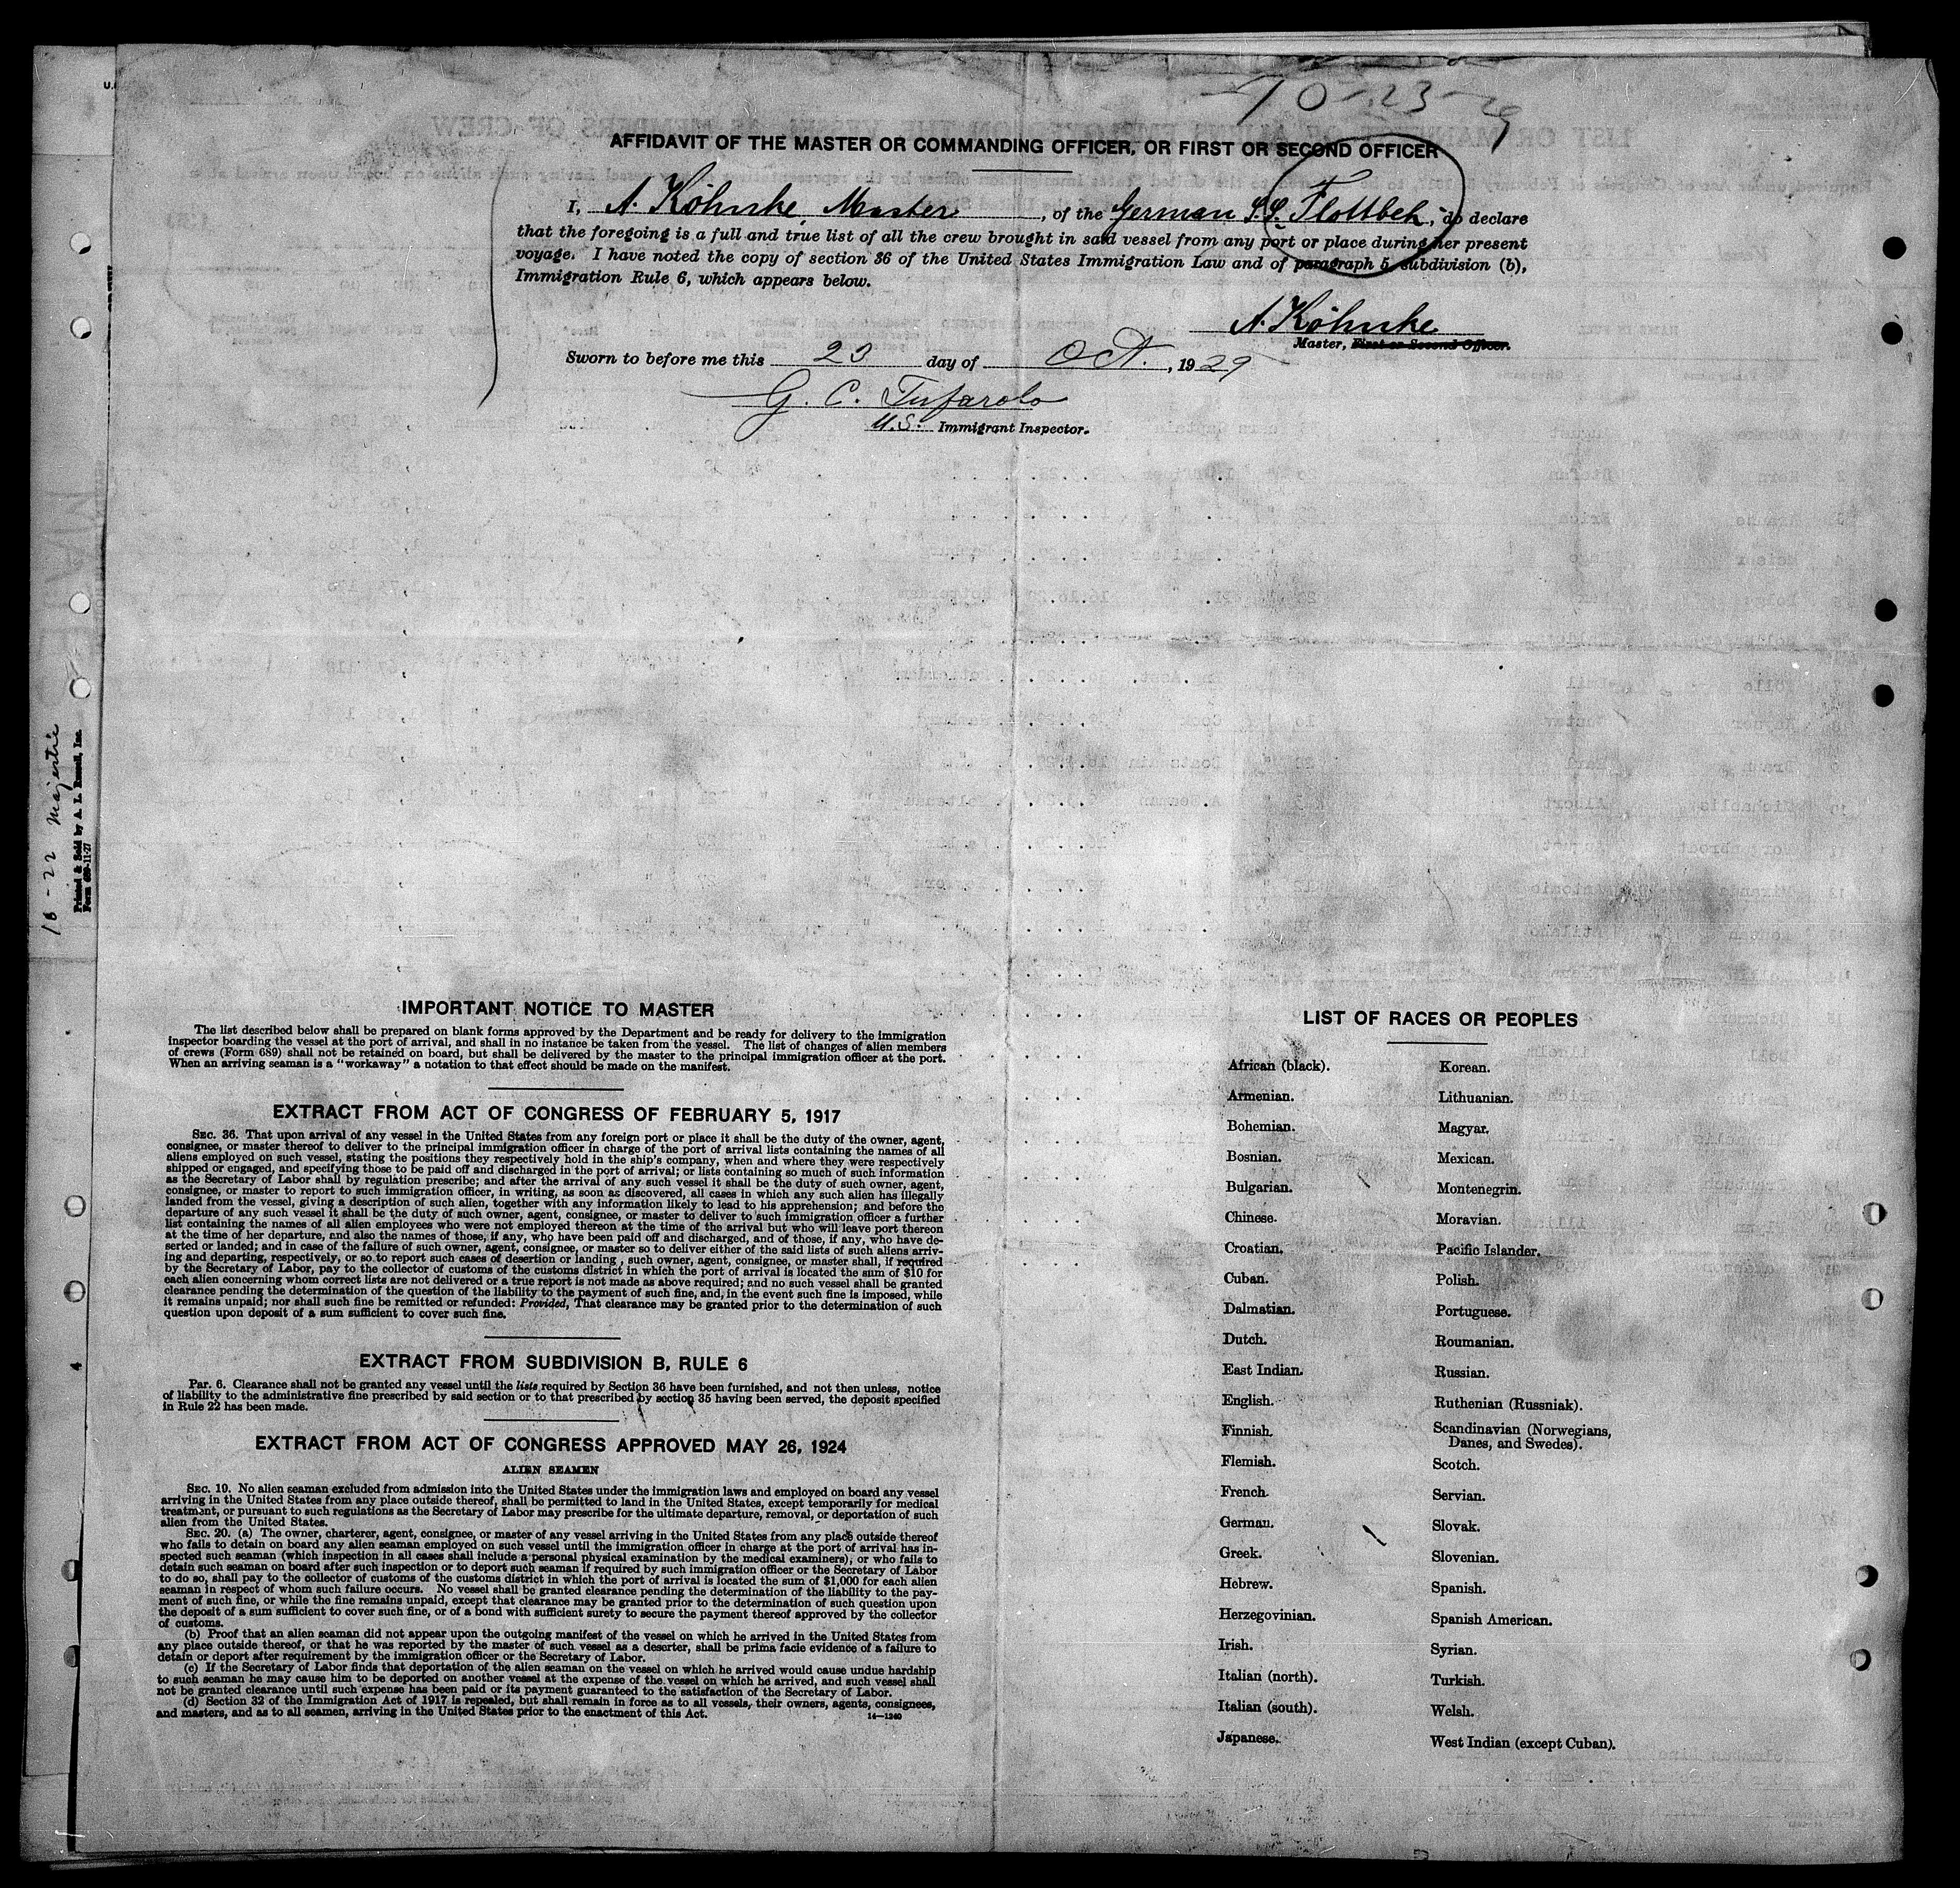 10-23-29
AFFIDAVIT OF THE MASTER OR COMMANDING OFFICER, OR FIRST OR SECOND OFFICER
I, A. Köhnke, Master, of the German S.S. Flottbek, do declare
that the foregoing is a full and true list of all the crew brought in said vessel from any port or place during her present
voyage. I have noted the copy of section 36 of the United States Immigration Law and of paragraph 5, subdivision (b),
Immigration Rule 6, which appears below.
A. Köhnke
Master, First or Second Officer.
Sworn to before me this 23 day of Oct., 1929
G. C. Tufarolo
U.S. Immigrant Inspector.
10-22 Majestic
Printed & Sold by A. L. Russell, Inc.
Form 689-11-27
IMPORTANT NOTICE TO MASTER
The list described below shall be prepared on blank forms approved by the Department and be ready for delivery to the immigration
inspector boarding the vessel at the port of arrival, and shall in no instance be taken from the vessel. The list of changes of alien members
of crews (Form 689) shall not be retained on board, but shall be delivered by the master to the principal immigration officer at the port.
When an arriving seaman is a "workaway" a notation to that effect should be made on the manifest.
EXTRACT FROM ACT OF CONGRESS OF FEBRUARY 5, 1917
SEC. 36. That upon arrival of any vessel in the United States from any foreign port or place it shall be the duty of the owner, agent,
consignee, or master thereof to deliver to the principal immigration officer in charge of the port of arrival lists containing the names of all
aliens employed on such vessel, stating the positions they respectively hold in the ship's company, when and where they were respectively
shipped or engaged, and specifying those to be paid off and discharged in the port of arrival; or lists containing so much of such information
as the Secretary of Labor shall by regulation prescribe; and after the arrival of any such vessel it shall be the duty of such owner, agent,
consignee, or master to report to such immigration officer, in writing, as soon as discovered, all cases in which any such alien has illegally
landed from the vessel, giving a description of such alien, together with any information likely to lead to his apprehension; and before the
departure of any such vessel it shall be the duty of such owner, agent, consignee, or master to deliver to such immigration officer a further
list containing the names of all alien employees who were not employed thereon at the time of the arrival but who will leave port thereon
at the time of her departure, and also the names of those, if any, who have been paid off and discharged, and of those, if any, who have de-
serted or landed; and in case of the failure of such owner, agent, consignee, or master so to deliver either of the said lists of such aliens arriv-
ing and departing, respectively, or so to report such cases of desertion or landing , such owner, agent, consignee, or master shall, if required
by the Secretary of Labor, pay to the collector of customs of the customs district in which the port of arrival is located the sum of $10 for
each alien concerning whom correct lists are not delivered or a true report is not made as above required; and no such vessel shall be granted
clearance pending the determination of the question of the liability to the payment of such fine, and, in the event such fine is imposed, while
it remains unpaid; nor shall such fine be remitted or refunded: Provided, That clearance may be granted prior to the determination of such
question upon deposit of a sum sufficient to cover such fine.
EXTRACT FROM SUBDIVISION B, RULE 6
Par. 6. Clearance shall not be granted any vessel until the lists required by Section 36 have been furnished, and not then unless, notice
of liability to the administrative fine prescribed by said section or to that prescribed by section 35 having been served, the deposit specified
in Rule 22 has been made.
EXTRACT FROM ACT OF CONGRESS APPROVED MAY 26, 1924
ALIEN SEAMEN
SEC. 19. No alien seaman excluded from admission into the United States under the immigration laws and employed on board any vessel
arriving in the United States from any place outside thereof, shall be permitted to land in the United States, except temporarily for medical
treatment, or pursuant to such regulations as the Secretary of Labor may prescribe for the ultimate departure, removal, or deportation of such
alien from the United States.
SEC. 20. (a) The owner, charterer, agent, consignee, or master of any vessel arriving in the United States from any place outside thereof
who fails to detain on board any alien seaman employed on such vessel until the immigration officer in charge at the port of arrival has in-
spected such seaman (which inspection in all cases shall include a personal physical examination by the medical examiners), or who fails to
detain such seaman on board after such inspection or to deport such seaman if required by such immigration officer or the Secretary of Labor
to do so, shall pay to the collector of customs of the customs district in which the port of arrival is located the sum of $1,000 for each alien
seaman in respect of whom such failure occurs. No vessel shall be granted clearance pending the determination of the liability to the pay-
ment of such fine, or while the fine remains unpaid, except that clearance may be granted prior to the determination of such question upon
the deposit of a sum sufficient to cover such fine, or of a bond with sufficient surety to secure the payment thereof approved by the collector
of customs.
(b) Proof that an alien seaman did not appear upon the outgoing manifest of the vessel on which he arrived in the United States from
any place outside thereof, or that he was reported by the master of such vessel as a deserter, shall be prima facie evidence of a failure to
detain or deport after requirement by the immigration officer or the Secretary of Labor.
(c) If the Secretary of Labor finds that deportation of the alien seaman on the vessel on which he arrived would cause undue hardship
to such seaman he may cause him to be deported on another vessel at the expense of the vessel on which he arrived, and such vessel shall
not be granted clearance until such expense has been paid or its payment guaranteed to the satisfaction of the Secretary of Labor.
(d) Section 32 of the Immigration Act of 1917 is repealed, but shall remain in force as to all vessels, their owners, agents, consignees,
and masters, and as to all seamen, arriving in the United States prior to the enactment of this Act.
14-1240
LIST OF RACES OR PEOPLES
African (black).
Armenian.
Bohemian.
Bosnian.
Bulgarian.
Chinese.
Croatian.
Cuban.
Dalmatian.
Dutch.
East Indian.
English.
Finnish.
Flemish.
French.
German.
Greek.
Hebrew.
Herzegovinian.
Irish.
Italian (north).
Italian (south).
Japanese.
Korean.
Lithuanian.
Magyar.
Mexican.
Montenegrin.
Moravian.
Pacific Islander.
Polish.
Portuguese.
Roumanian.
Russian.
Ruthenian (Russniak).
Scandinavian (Norwegians,
Danes, and Swedes).
Scotch.
Servian.
Slovak.
Slovenian.
Spanish.
Spanish American.
Syrian.
Turkish.
Welsh.
West Indian (except Cuban).